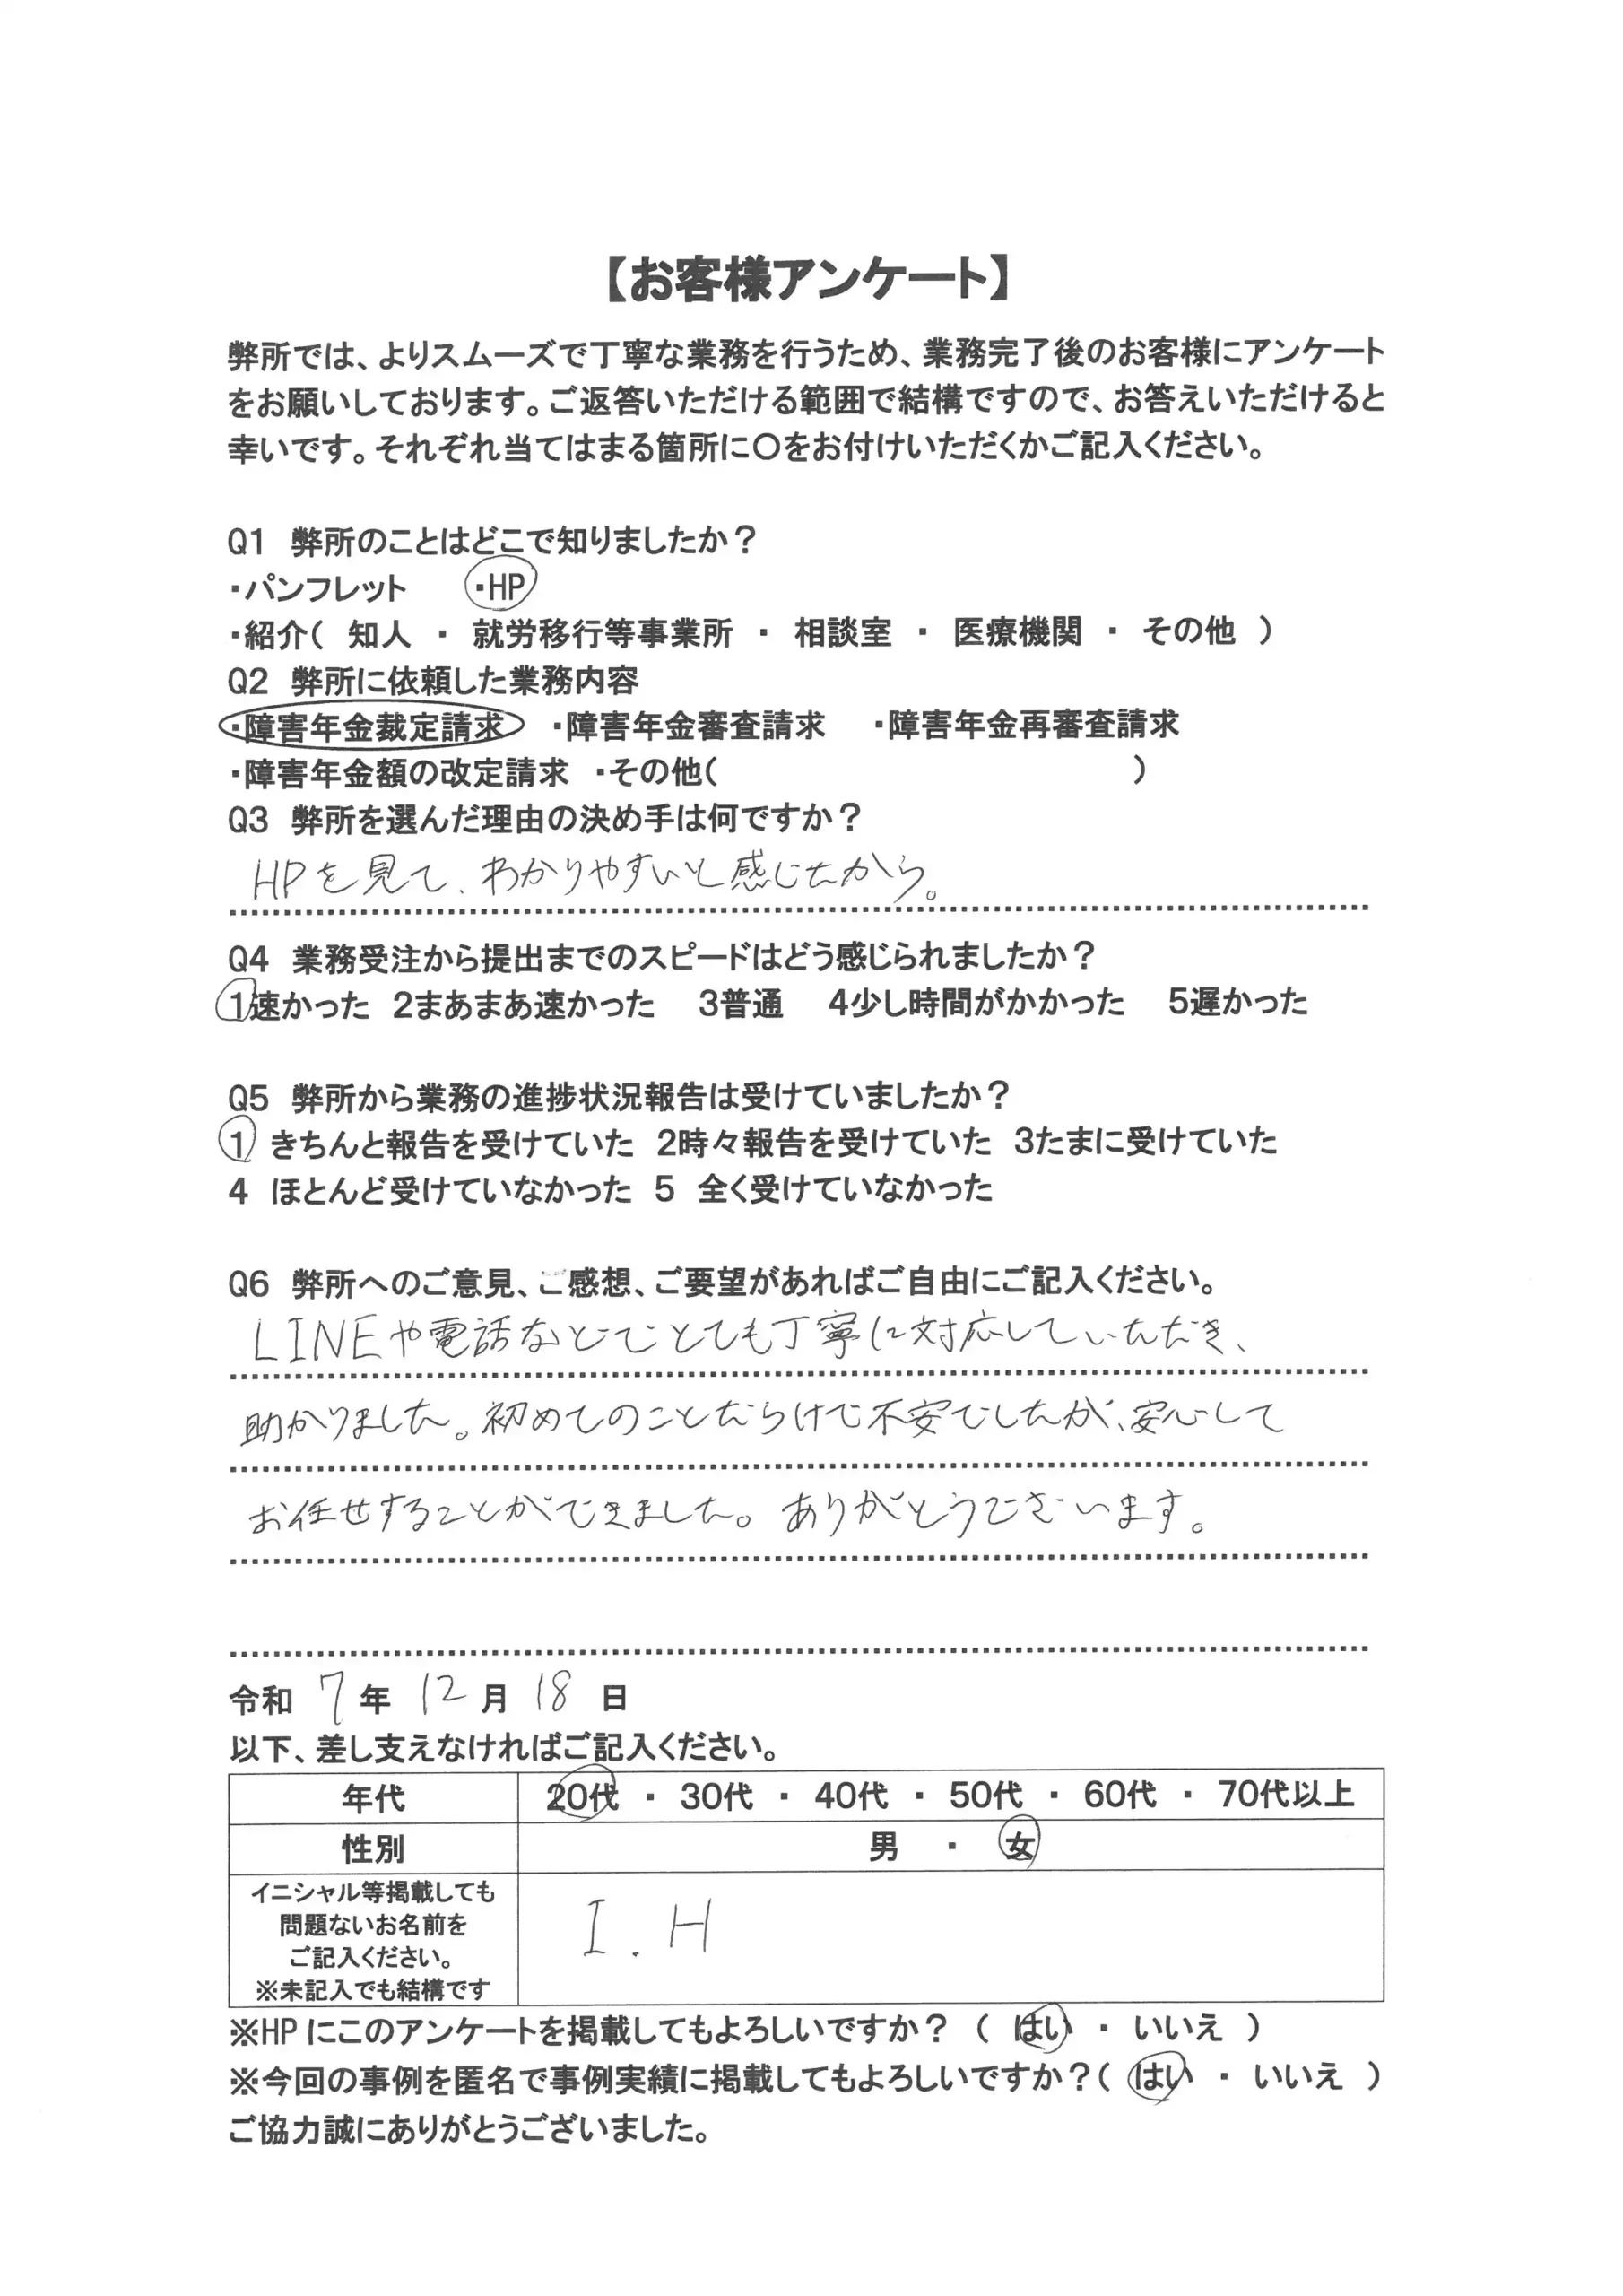 【お客様アンケート】
弊所では、よりスムーズで丁寧な業務を行うため、業務完了後のお客様にアンケート
をお願いしております。ご返答いただける範囲で結構ですので、お答えいただけると
幸いです。それぞれ当てはまる箇所に〇をお付けいただくかご記入ください。
Q1 弊所のことはどこで知りましたか？
・パンフレット ・HP
・紹介（ 知人 ・ 就労移行等事業所 ・ 相談室 ・ 医療機関 ・ その他 ）
Q2 弊所に依頼した業務内容
・障害年金裁定請求 ・障害年金審査請求 ・障害年金再審査請求
・障害年金額の改定請求 ・その他（ ）
Q3 弊所を選んだ理由の決め手は何ですか？
HPを見て、わかりやすいと感じたから。
Q4 業務受注から提出までのスピードはどう感じられましたか？
1速かった 2まあまあ速かった 3普通 4少し時間がかかった 5遅かった
Q5 弊所から業務の進捗状況報告は受けていましたか？
1 きちんと報告を受けていた 2時々報告を受けていた 3たまに受けていた
4 ほとんど受けていなかった 5 全く受けていなかった
Q6 弊所へのご意見、ご感想、ご要望があればご自由にご記入ください。
LINEや電話などでとても丁寧に対応していただき、
助かりました。初めてのことだらけで不安でしたが、安心して
お任せすることができました。ありがとうございます。
令和 7 年 12 月 18 日
以下、差し支えなければご記入ください。
年代 20代 ・ 30代 ・ 40代 ・ 50代 ・ 60代 ・ 70代以上
性別 男 ・ 女
イニシャル等掲載しても
問題ないお名前を
ご記入ください。
※未記入でも結構です
I.H
※HPにこのアンケートを掲載してもよろしいですか？（ はい ・ いいえ ）
※今回の事例を匿名で事例実績に掲載してもよろしいですか？（ はい ・ いいえ ）
ご協力誠にありがとうございました。